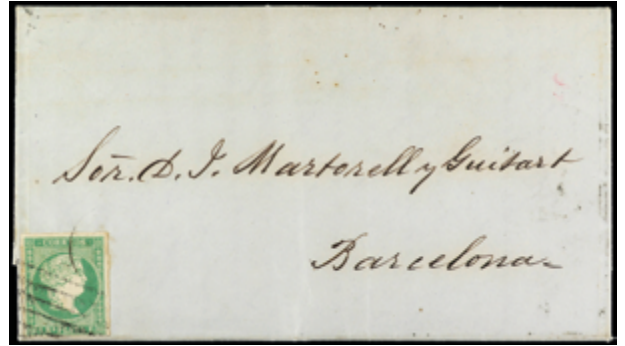 Sor. D. J. Martorell y Guitart
Barcelona
CORREOS